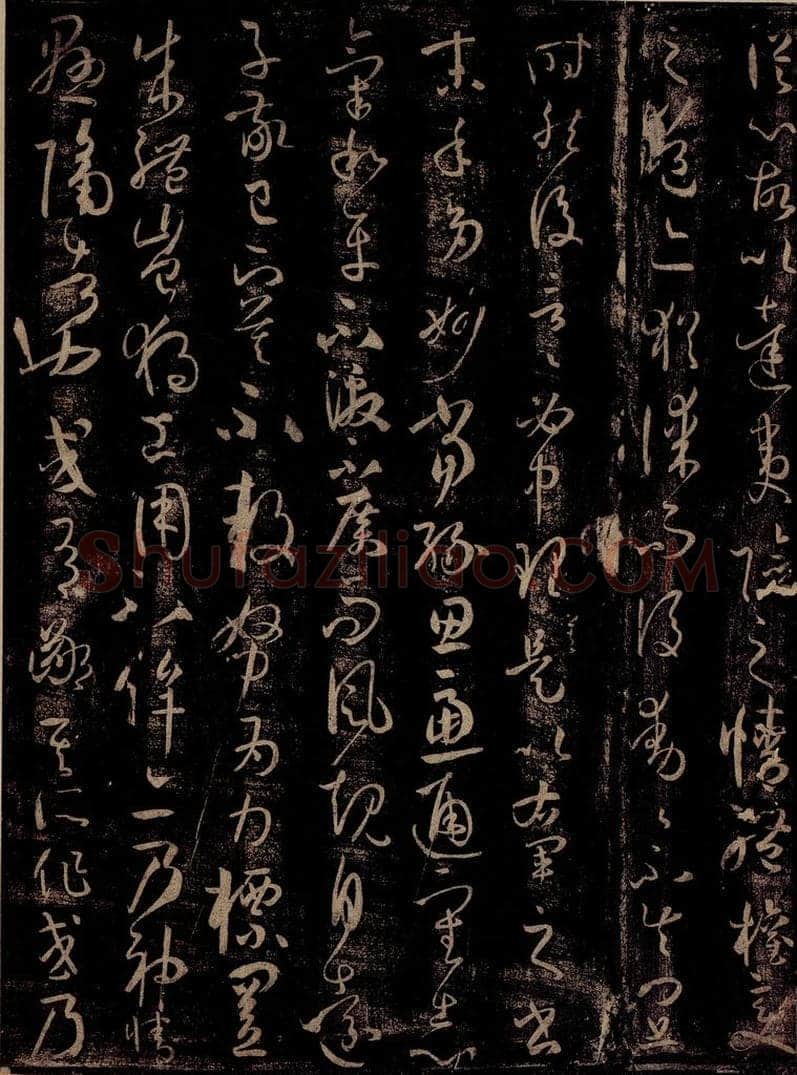 從心故以達夷險之情體權變
之道亦猶謀而後動々不失宜
時然後言々必中理矣是以右軍之書
末年多妙當緣思慮通審志
氣和平不激不厲而風規自遠
子敬已下莫不鼓努為力標置
成體豈獨工用不侔亦乃神情
懸隔者也或有鄙其所作或乃
Shufaziliao.COM